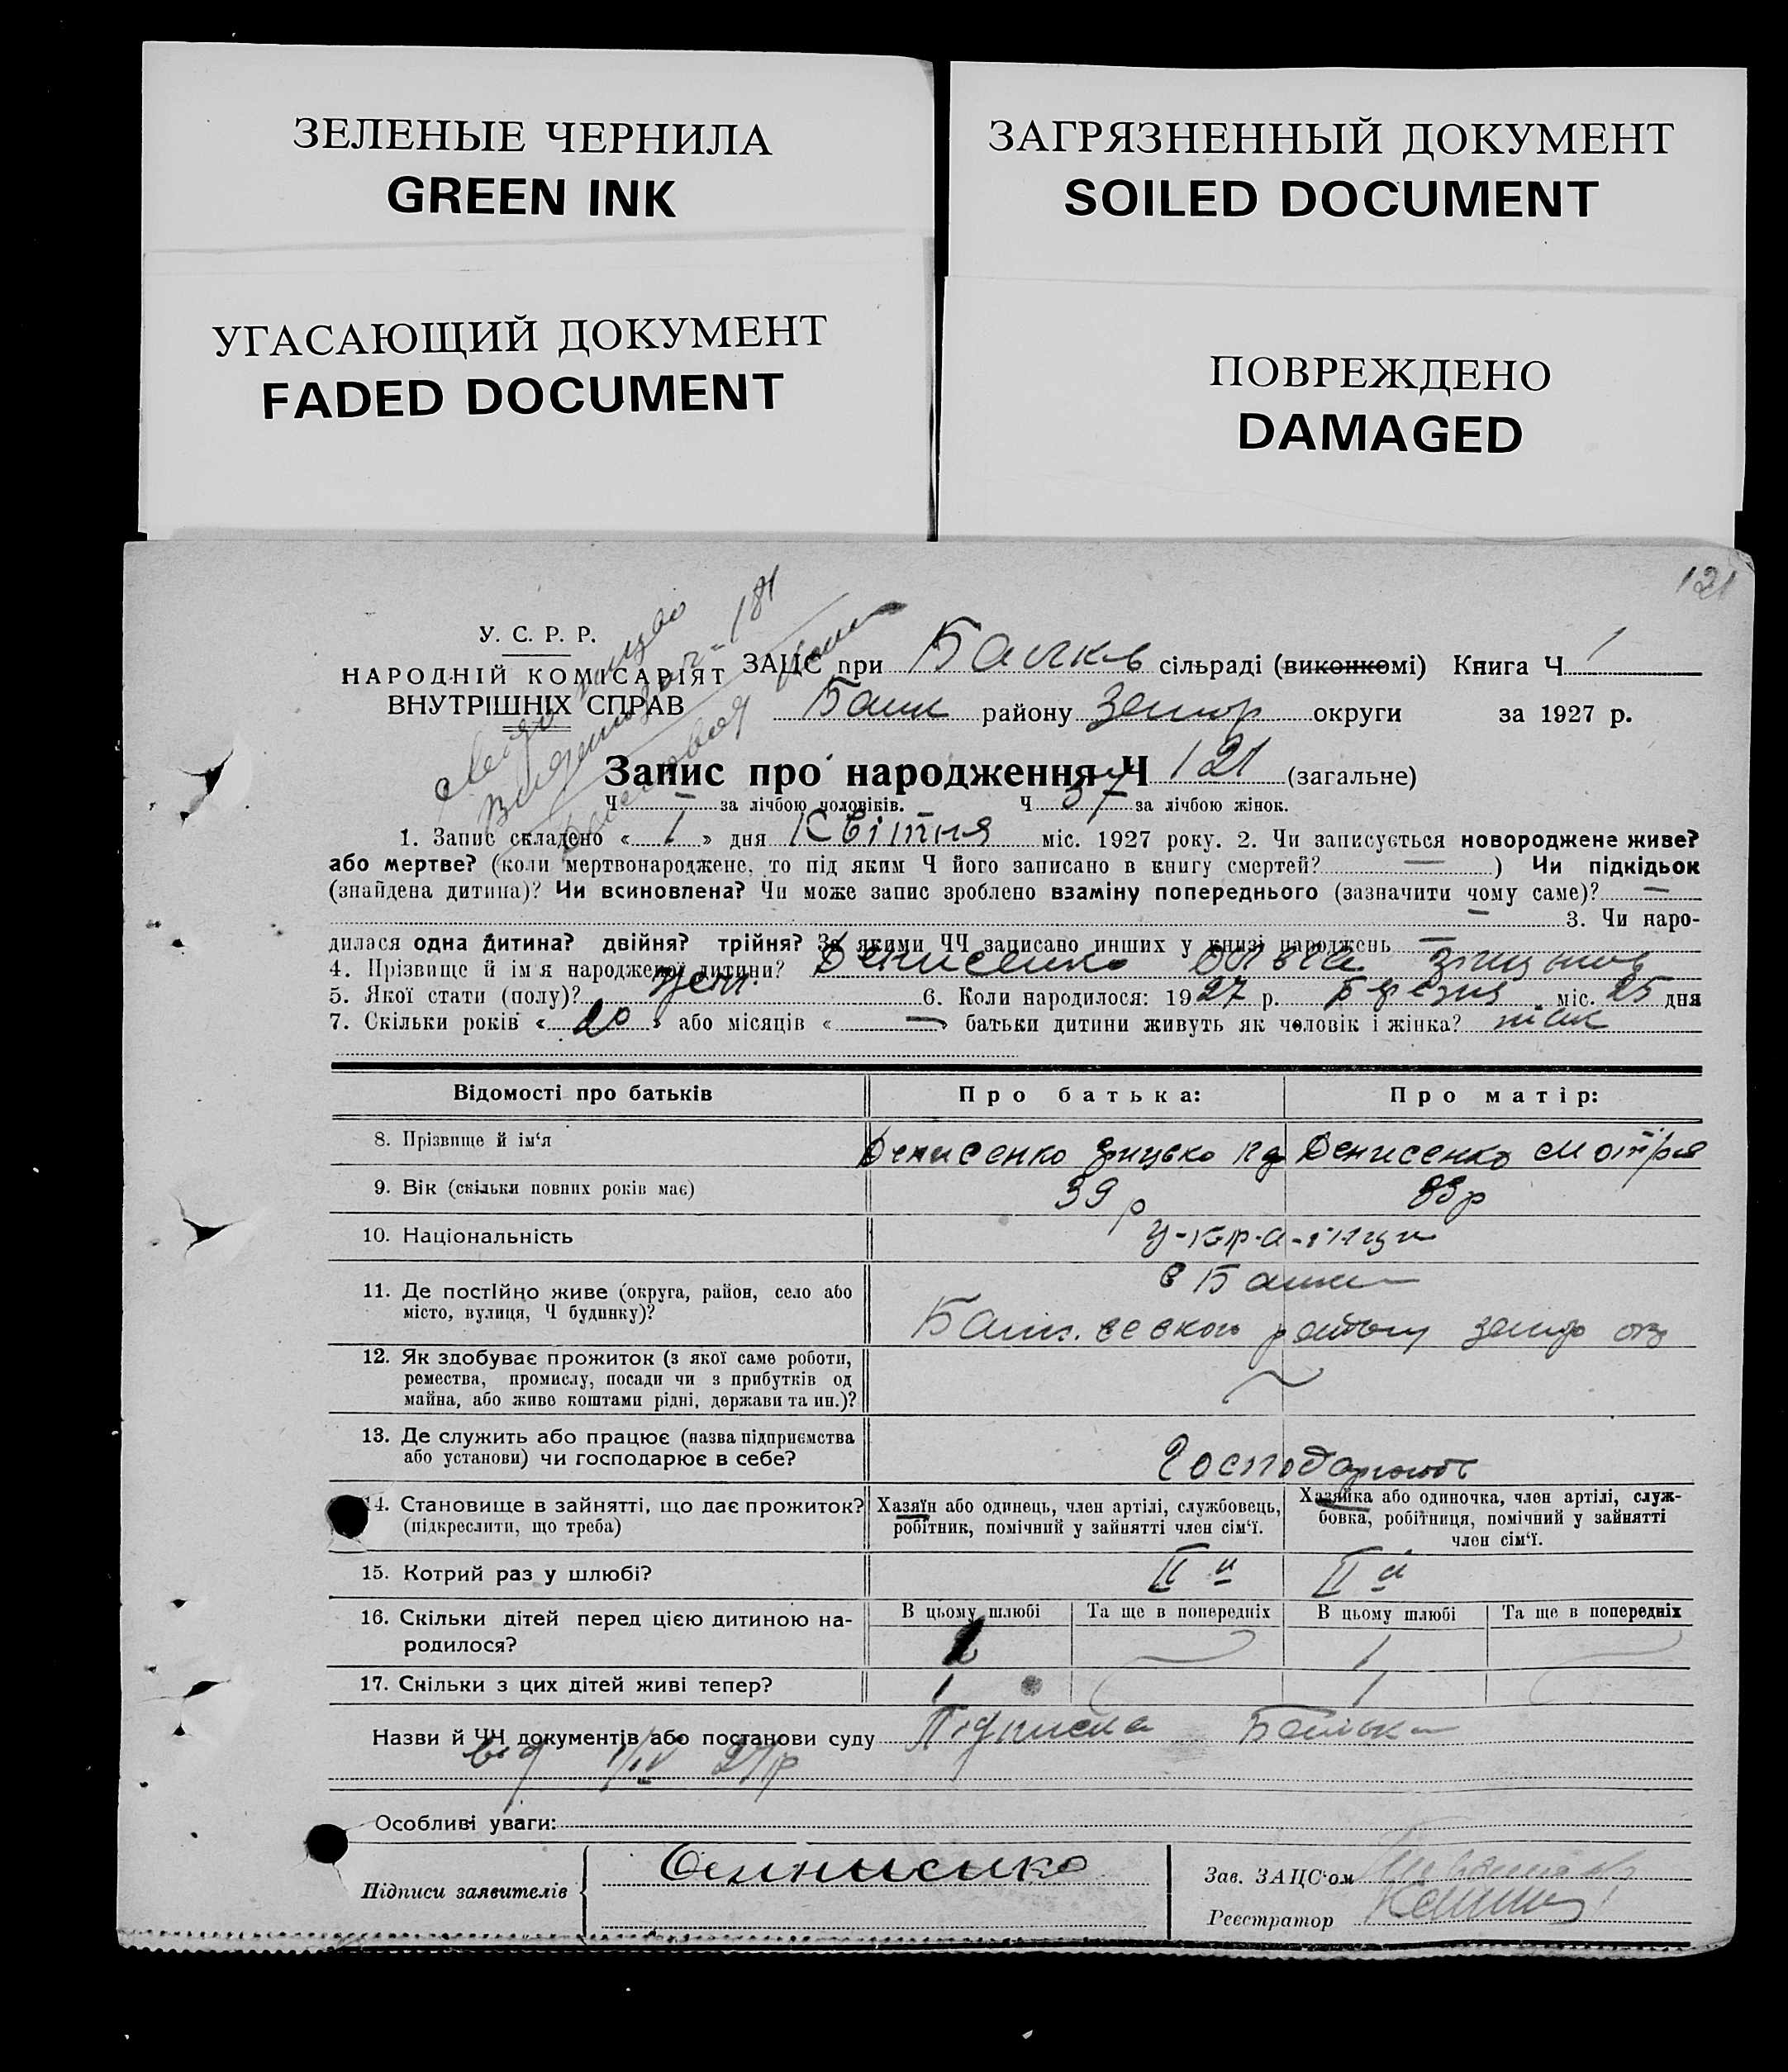 ЗЕЛЕНЫЕ ЧЕРНИЛА
GREEN INK
ЗАГРЯЗНЕННЫЙ ДОКУМЕНТ
SOILED DOCUMENT
УГАСАЮЩИЙ ДОКУМЕНТ
FADED DOCUMENT
ПОВРЕЖДЕНО
DAMAGED
121
У. С. Р. Р.
НАРОДНІЙ КОМІСАРІЯТ
ВНУТРІШНІХ СПРАВ
ЗАЦС при сільраді (виконкомі) Книга Ч 1
району округи за 1927 р.
Запис про народження Ч 121 (загальне)
Ч — за лічбою чоловіків. Ч 57 за лічбою жінок.
1. Запис складено « 1 » дня Квітня міс. 1927 року. 2. Чи записується новороджене живе?
або мертве? (коли мертвонароджене, то під яким Ч його записано в книгу смертей? — ) Чи підкідьок
(знайдена дитина)? Чи всиновлена? Чи може запис зроблено взаміну попереднього (зазначити чому саме)? —
— 3. Чи наро-
дилася одна дитина? двійня? трійня? За якими ЧЧ записано инших у книзі народжень —
4. Прізвище й ім'я народженої дитини? Денисенко Ольга
5. Якої стати (полу)? жен. 6. Коли народилося: 1927 р. Березня міс. 25 дня
7. Скільки років « » або місяців « — » батьки дитини живуть як чоловік і жінка?
Відомості про батьків Про батька: Про матір:
8. Прізвище й ім'я Денисенко Грицько Денисенко Мотря
9. Вік (скільки повних років має) 39 р 33р
10. Національність у-кр-а-їнци
11. Де постійно живе (округа, район, село або
місто, вулиця, Ч будинку)?
12. Як здобуває прожиток (з якої саме роботи,
ремества, промислу, посади чи з прибутків од
майна, або живе коштами рідні, держави та ин.)?
13. Де служить або працює (назва підприємства
або установи) чи господарює в себе? Господарюють
14. Становище в зайнятті, що дає прожиток?
(підкреслити, що треба)
Хазяїн або одинець, член артілі, службовець,
робітник, помічний у зайнятті член сім'ї.
Хазяйка або одиночка, член артілі, служ-
бовка, робітниця, помічний у зайнятті
член сім'ї.
15. Котрий раз у шлюбі? ІІ й ІІ й
16. Скільки дітей перед цією дитиною на-
родилося?
В цьому шлюбі Та ще в попередніх В цьому шлюбі Та ще в попередніх
1
17. Скільки з цих дітей живі тепер? 1 1
Назви й ЧЧ документів або постанови суду Підписка Батька
від 1/IV 27р
Особливі уваги:
Підписи заявителів
Зав. ЗАЦС'ом
Реєстратор